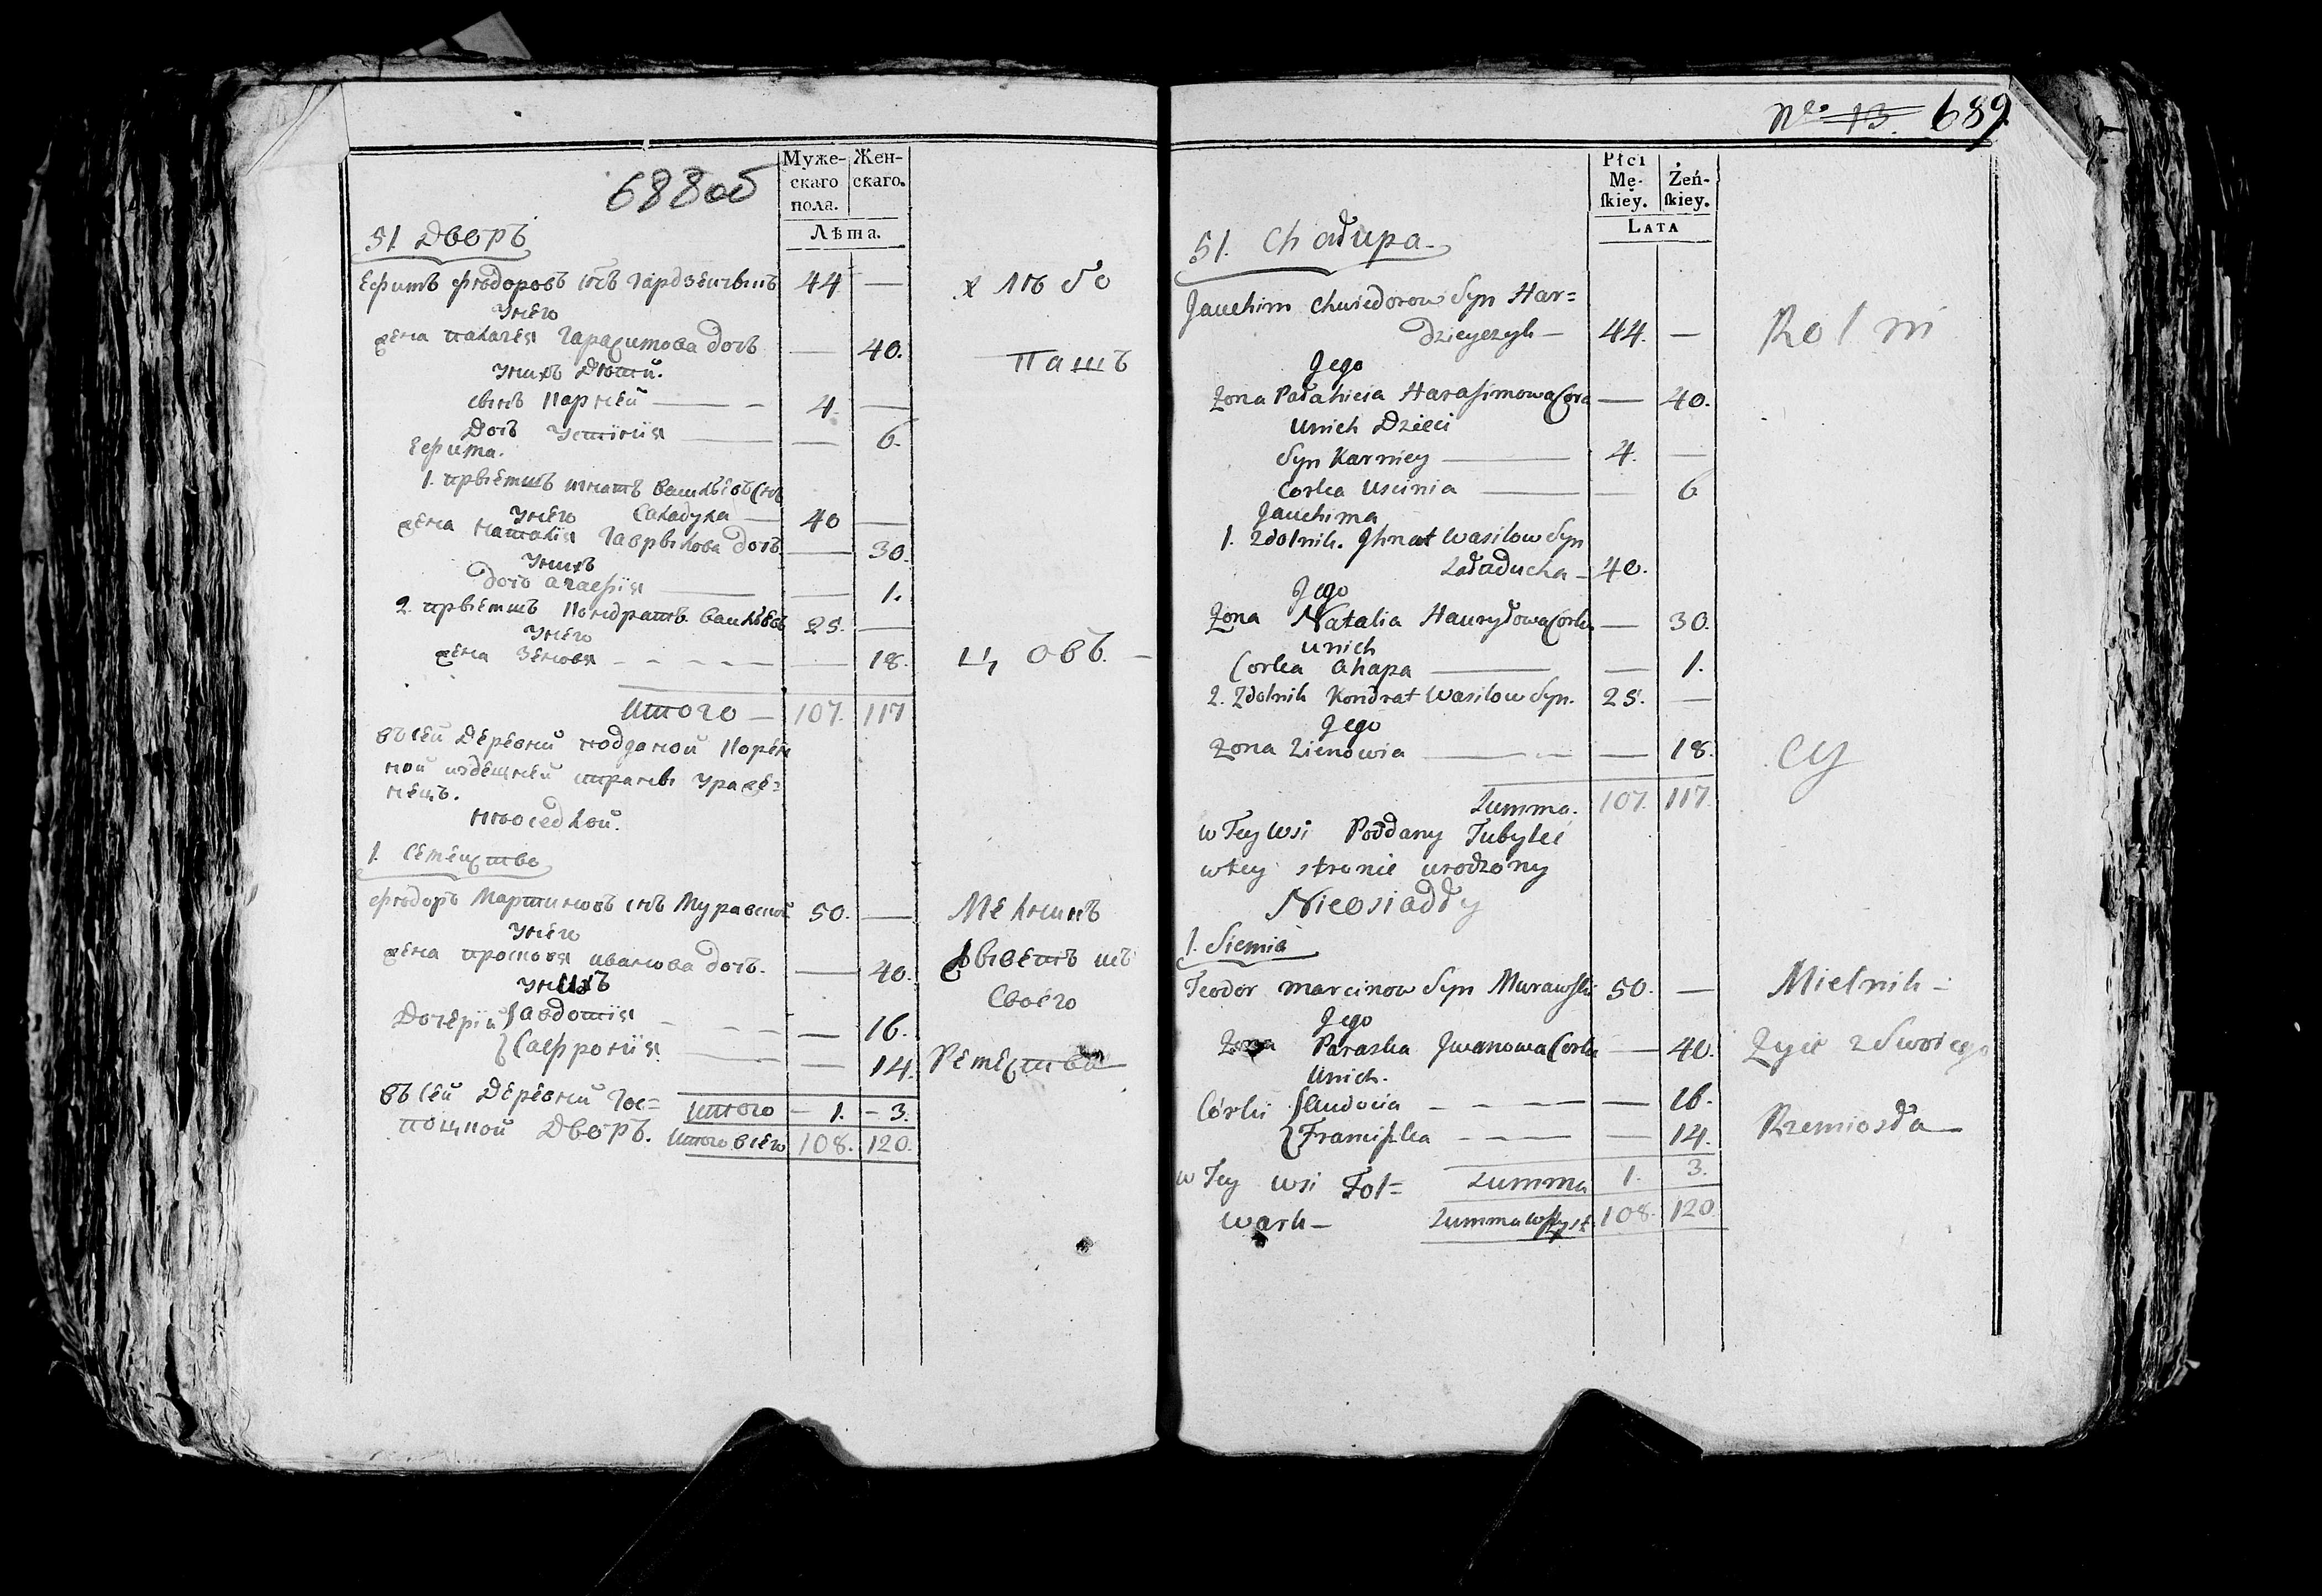 688 об
Муже-
скаго
пола.
Жен-
скаго.
Лѣта.
51 Дворъ
44 —
хлѣбо
Унего
жена Палагея Гарасимова дочь — 40.
пашъ
Унихъ Дѣти.
сынъ Карнѣй — 4. —
Дочь Устинiя — — 6.
Ефима.
1. Игнатъ
Унего 40 —
жена Наталiя Гаврылова дочь — 30.
Унихъ
дочь Агафiя — 1.
2. Кондратъ 25. —
Унего
жена Зеновя — 18.
цовъ. —
Итого — 107. 117
всей деревни подданой Корен
ной издешней страны Уроже=
нецъ.
1. Семейство
Фѣдоръ Мартиновъ снъ Муравской 50. —
Мелникъ
Унего
жена Просковя иванова дочь. — 40.
Жыветъ изъ
Унихъ
Своего
Дочерiи Авдотiя — 16.
Сафронiя — 14.
Ремества
всей Деревни Гос= Итого — 1. — 3.
Дворъ. Итого всего 108. 120.
No 13. 689
Płci
Mę-
ſkiey.
Żeń-
ſkiey.
LATA
51. Chałupa
Jauchim Chwiedorow Syn Har=
dzieyczyk — 44. —
Rolni
Jego
Zona Pałahieia Harasimowa Cora — 40.
Unich Dzieci
Syn Karniey — 4. —
Corka Uscinia — — 6
Jauchima
1. Zdolnik. Jhnat Wasilow Syn
Ładaducha — 40.
Jego
Zona Natalia Hauryłowa Corka — 30.
unich
Corka Ahapa — — 1.
2. Zdolnik Kondrat Wasilow Syn. 25. —
Jego
Zona Zienowia — — 18.
cy
Summa. 107. 117.
w Tey Wsi Poddany Tubylei
wtey stronie urodzony
Nieosiadły
1. Siemia
Teodor Marcinow Syn Murawſki 50. —
Mielnik —
Jego
Zona Paraska Jwanowa Corka — 40.
Zyie z Swoiego
Unich.
Córki Audocia — — 16.
Franciſzka — — 14.
Rzemiosła
w Tey wsi Fol= Summa 1. 3.
wark — Summa wszyst. 108. 120